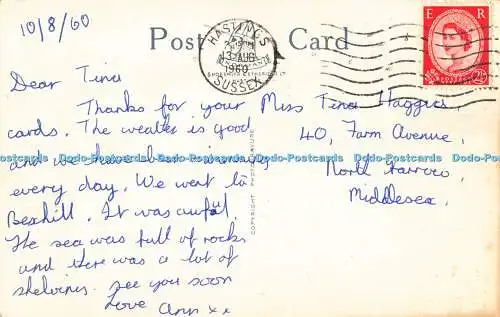 10/8/60
Post Card
HASTINGS
13 AUG
1960
SUSSEX
E R
2½
Dear Tina
Thanks for your
cards. The weather is good
and we have been swimming
every day. We went to
Bexhill. It was awful.
The sea was full of rocks
and there was a lot of
shelving. See you soon
Love Ann xx
Miss Tina Haggis
40, Farm Avenue,
North Harrow,
Middlesex.
COPYRIGHT
Dodo-Postcards Dodo-Postcards Dodo-Postcards Dodo-Postcards Dodo-Postcards Dodo-Postcards